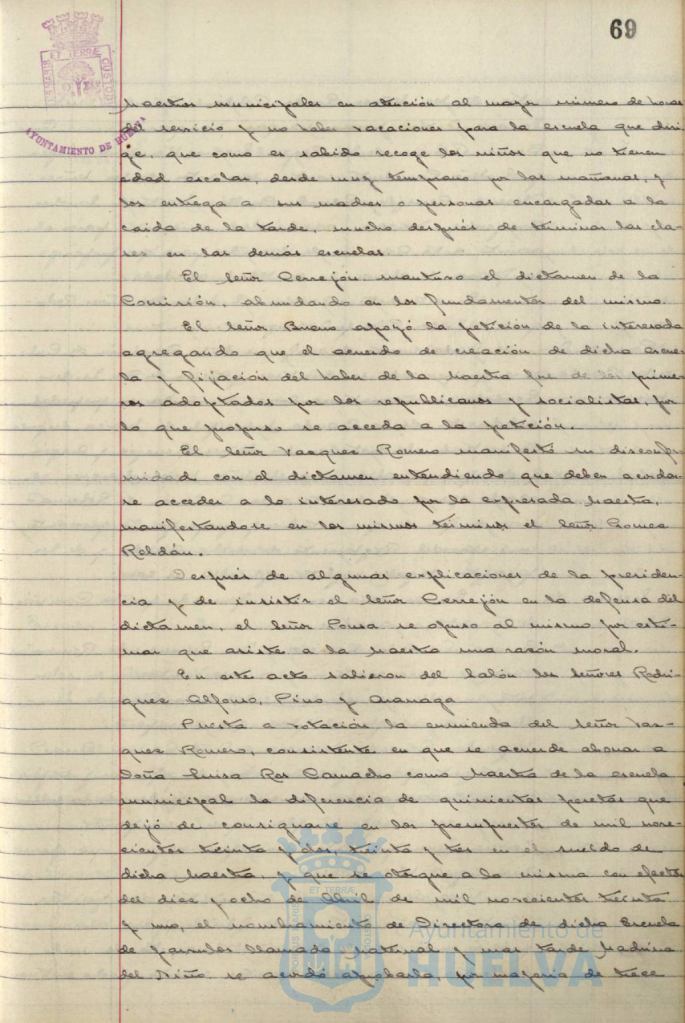 69
PORTUS MARIS ET TERRAE CUSTODIA
AYUNTAMIENTO DE HUELVA
Maestros municipales en atención al mayor número de horas
del servicio y no haber vacaciones para la escuela que diri
ge, que como es sabido recoge los niños que no tienen
edad escolar, desde muy temprano por las mañanas, y
los entrega a sus madres o personas encargadas a la
caida de la tarde, mucho después de terminar las cla-
ses en las demás escuelas.
El Señor Cerrejón, mantuvo el dictamen de la
Comisión, abundando en los fundamentos del mismo.
El Señor Bueno apoyó la petición de la interesada
agregando que el acuerdo de creación de dicha escue
la y fijación del haber de la Maestra fue de los prime
ros adoptados por los republicanos y socialistas, por
lo que propuso se acceda a la petición.
El Señor Vazquez Romero manifestó su disconfor
midad con el dictamen entendiendo que deben acordar
se acceder a lo interesado por la expresada Maestra,
manifestandose en los mismos términos el Señor Gomez
Roldán.
Después de algunas explicaciones de la presiden-
cia y de insistir el Señor Cerrejón en la defensa del
dictamen, el Señor Ponsa se opuso al mismo por esti-
mar que asiste a la Maestra una razón moral.
En este acto salieron del Salón los Señores Rodri-
guez Alfonso, Pino y
Puesta a votación la enmienda del Señor Vaz-
quez Romero, consistente en que se acuerde abonar a
Doña Luisa Ros Camacho como Maestra de la escuela
municipal la diferencia de quinientas pesetas que
dejó de consignarse en los presupuestos de mil nove-
cientos treinta y dos, treinta y tres en el sueldo de
dicha Maestra, y que se otorgue a la misma con efectos
del diez y ocho de Abril de mil novecientos treinta
y uno, el nombramiento de Directora de dicha Escuela
de párvulos llamada maternal y mas tarde Madrina
del Niño, se acordó aprobarla, por mayoria de trece
Ayuntamiento de
HUELVA